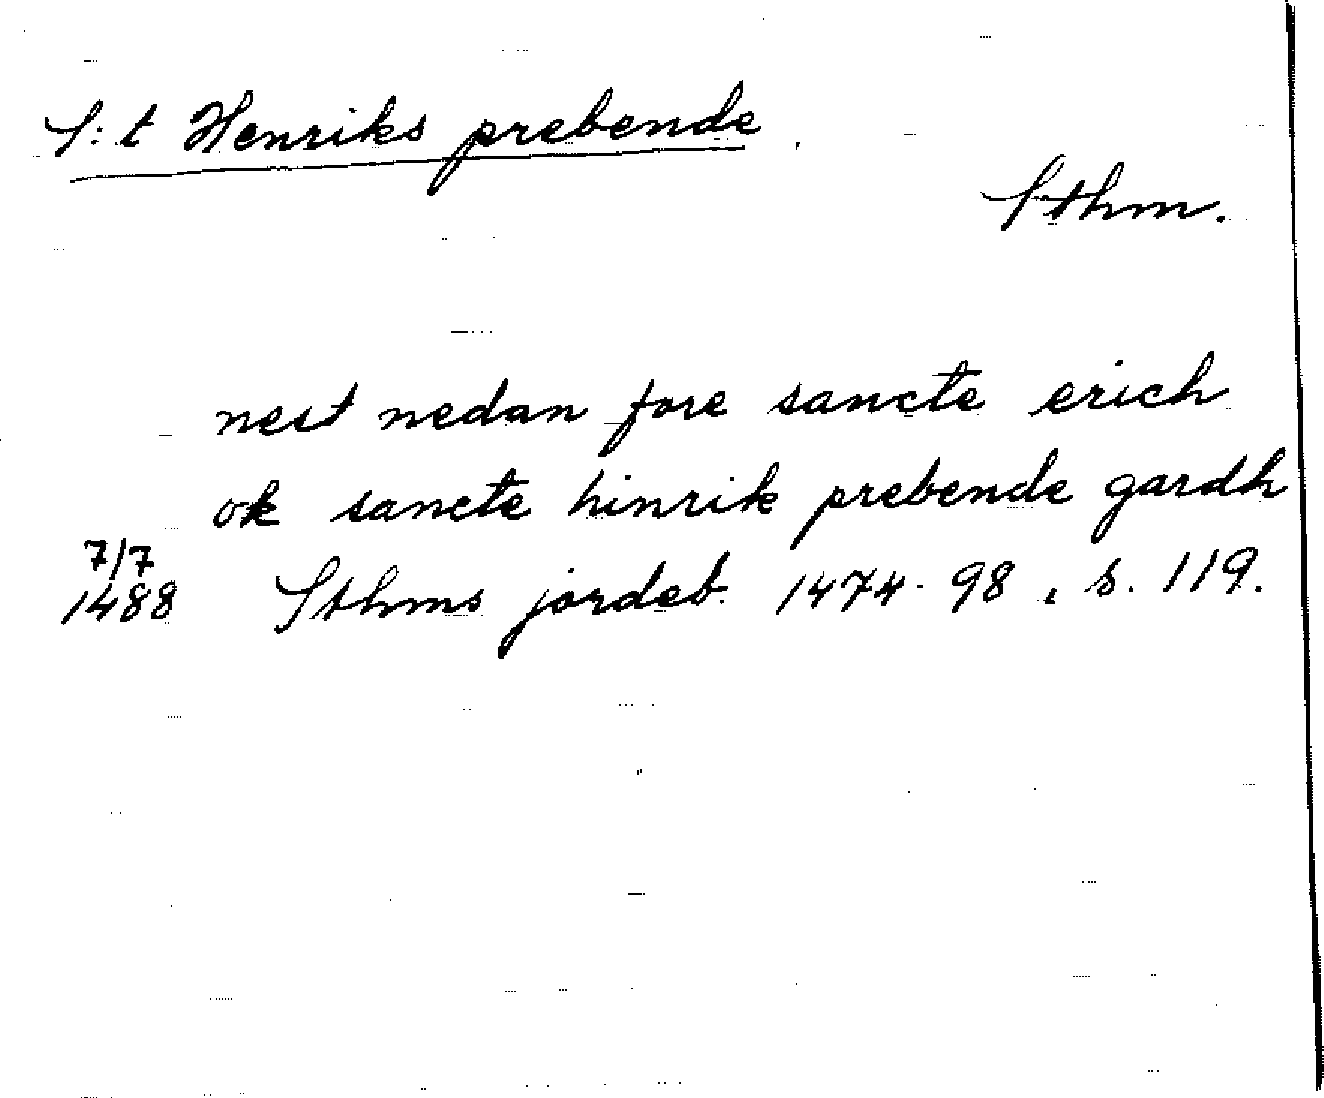 S:t Henriks prebende
Sthm.
nest nedan fore sancte erich
ok sancte hinrik prebende gardh
7/7
1488 Sthms jordeb. 1474-98, s. 119.